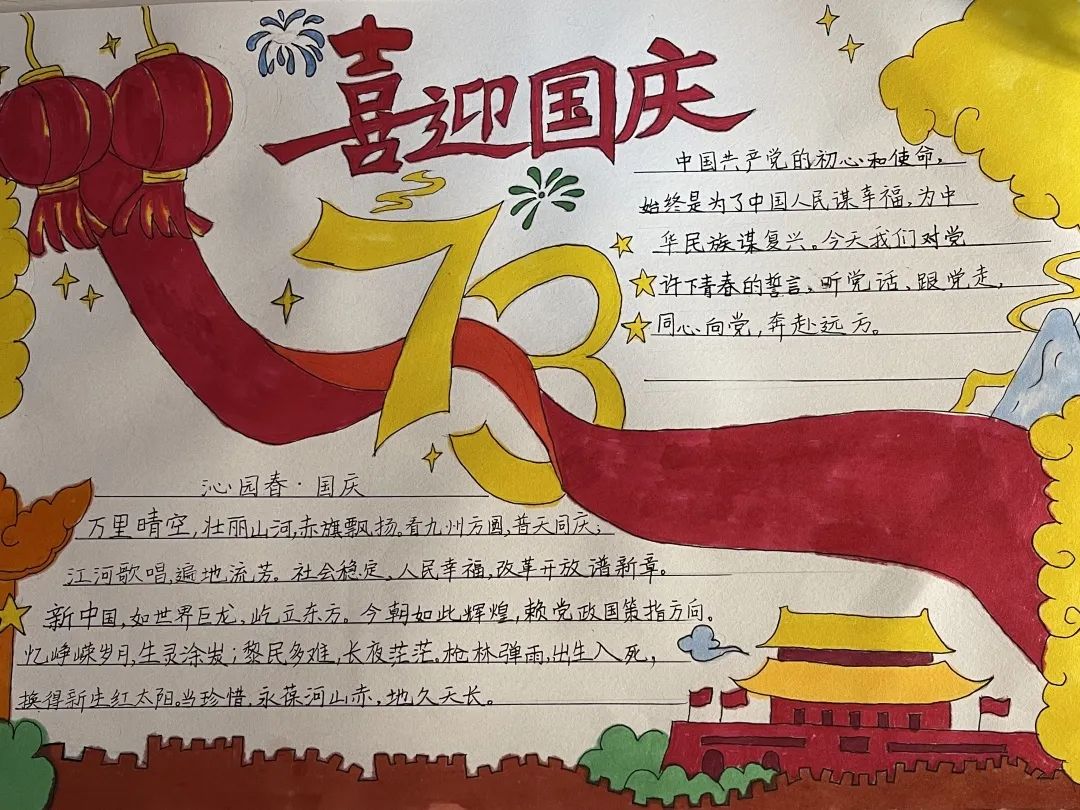 喜迎国庆
73
中国共产党的初心和使命,
始终是为了中国人民谋幸福,为中
华民族谋复兴。今天我们对党
许下青春的誓言、听党话、跟党走,
同心向党,奔赴远方。
沁园春·国庆
万里晴空,壮丽山河,赤旗飘扬。看九州方圆,普天同庆;
江河歌唱,遍地流芳。社会稳定,人民幸福,改革开放谱新章。
新中国,如世界巨龙、屹立东方。今朝如此辉煌,赖党政国策指方向。
忆峥嵘岁月,生灵涂炭;黎民多难,长夜茫茫,枪林弹雨,出生入死,
换得新生红太阳。当珍惜,永葆河山赤,地久天长。